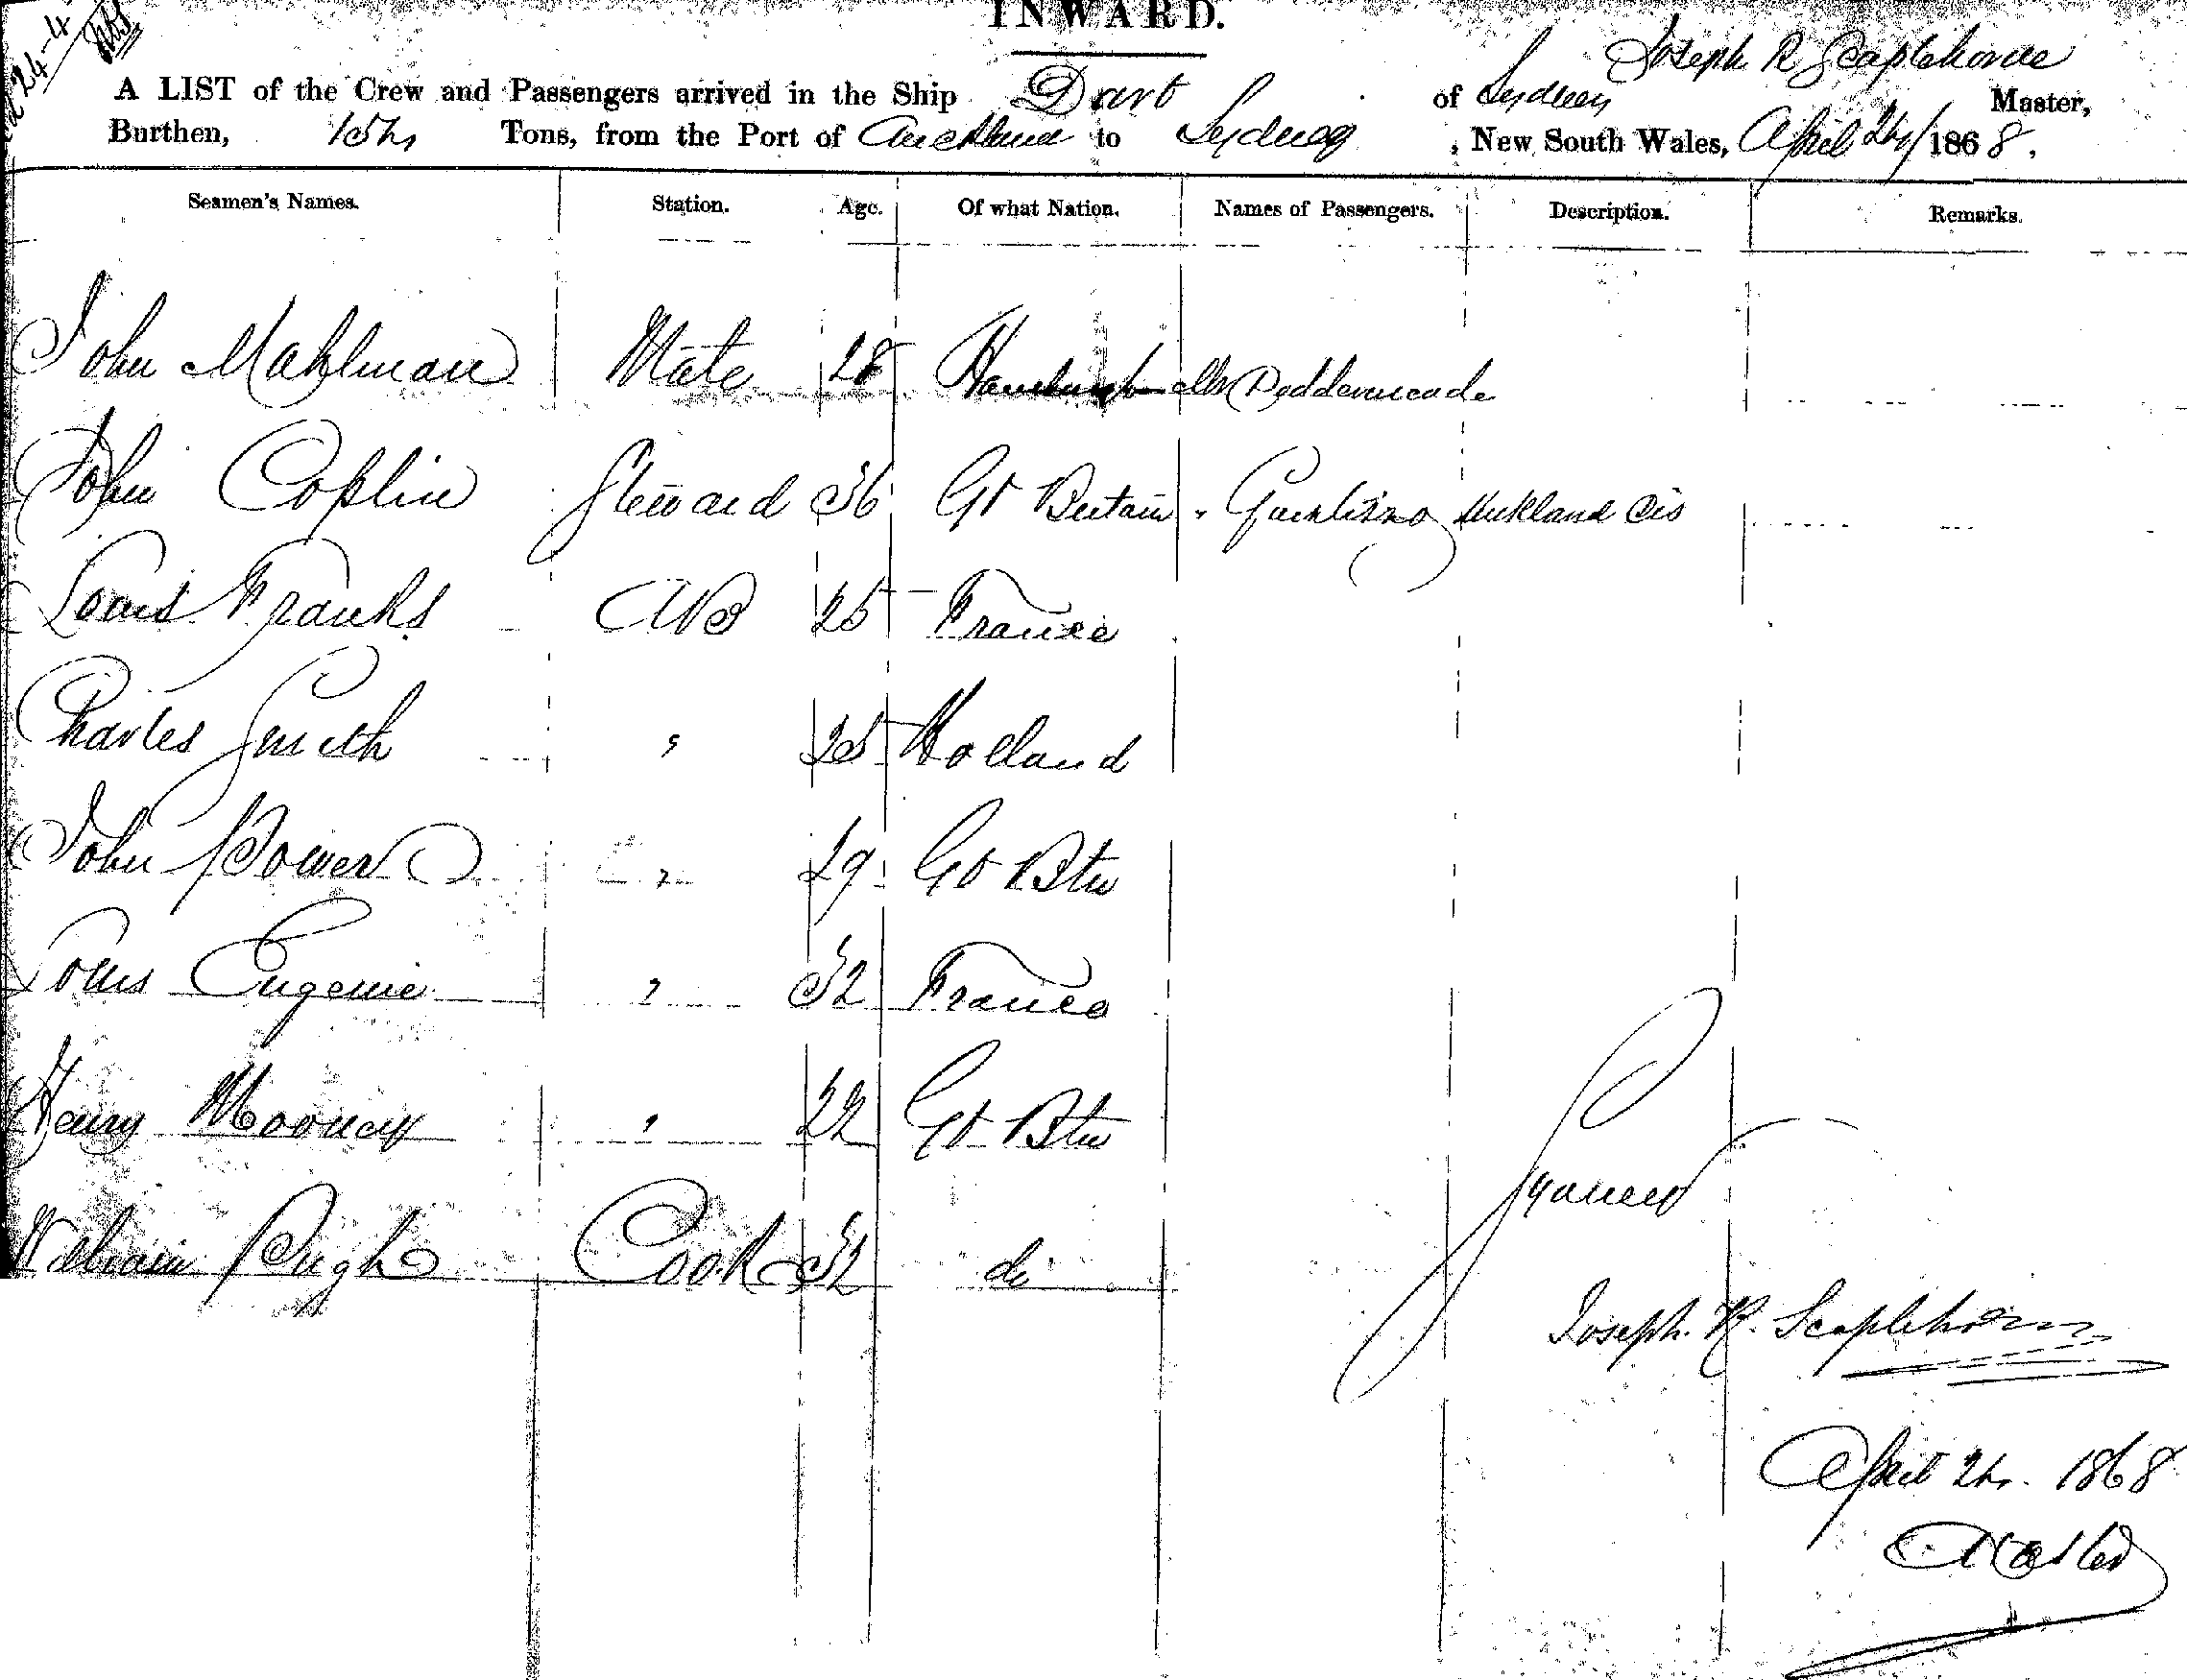 INWARD.
Joseph R Scaplehorne
A LIST of the Crew and Passengers arrived in the Ship Dart of Sydney Master,
Burthen, Tons, from the Port of Auckland to Sydney, New South Wales, April 24/1868.
Seamen's Names. Station. Age. Of what Nation. Names of Passengers. Description. Remarks.
John Mahlman Mate 28 Hamburgh
John Coplin Steward 36 Gt Britain
Louis Franks AB 25 France
Charles Smith " 25 Holland
John Power " 29 Gt Btn
Louis Eugenie " 32 France
Henry Mooney " 22 Gt Btn
William Pugh Cook 32 do
Joseph. R. Scaplehorn
April 24. 1868
Master